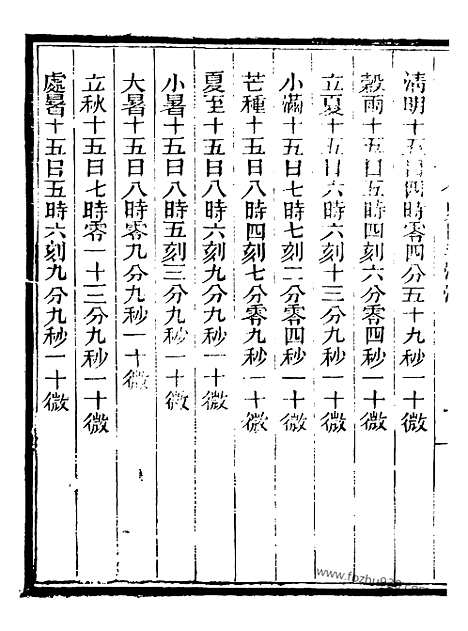 清明十五日四時零四分五十九秒一十微
穀雨十五日五時四刻六分零四秒一十微
立夏十五日六時六刻十三分九秒一十微
小滿十五日七時七刻二分零四秒一十微
芒種十五日八時四刻七分零九秒一十微
夏至十五日八時六刻九分九秒一十微
小暑十五日八時五刻三分九秒一十微
大暑十五日八時零九分九秒一十微
立秋十五日七時零一十三分九秒一十微
處暑十五日五時六刻九分九秒一十微